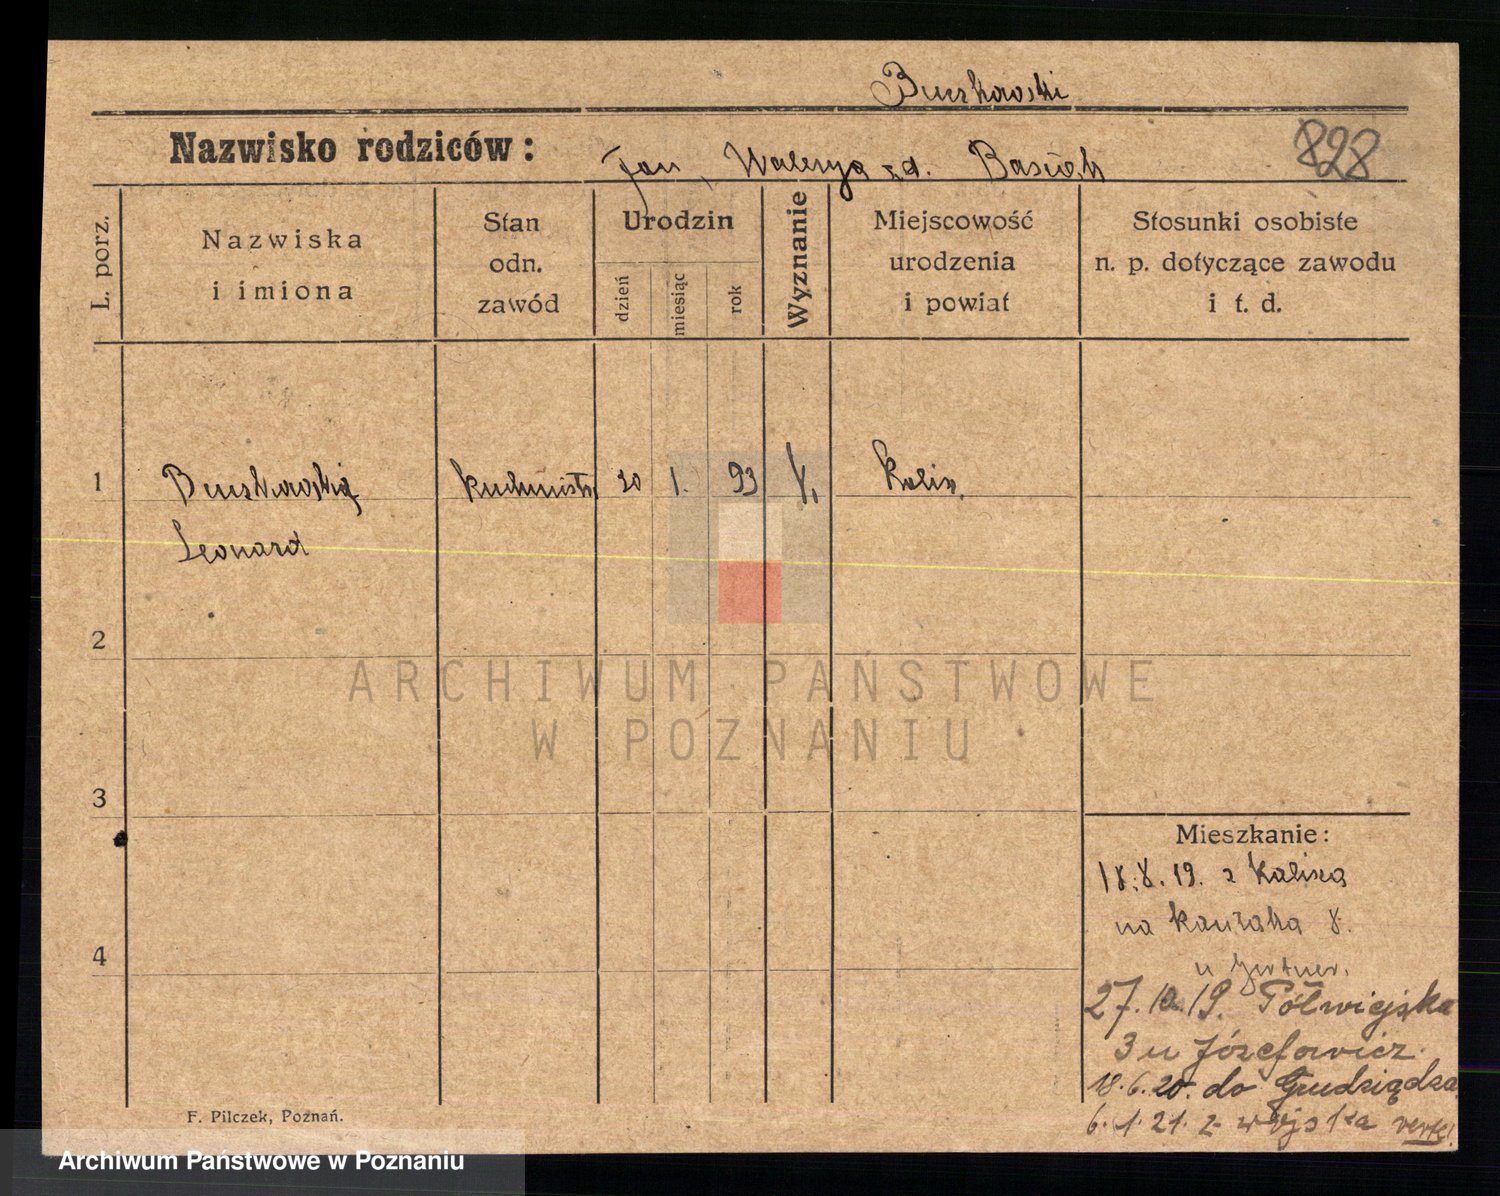 Burkowski
Nazwisko rodziców: Jan, Walerya zd. Basiok 828
L. porz.
Nazwiska
i imiona
Stan
odn.
zawód
Urodzin
dzień
miesiąc
rok
Wyznanie
Miejscowość
urodzenia
i powiat
Stosunki osobiste
n. p. dotyczące zawodu
i t. d.
1 kuchmistr 20 1. 93 k. Kalisz
Leonard
2
3
4
Mieszkanie:
18.8.19. z Kalisza
na Kantaka 8.
u Gertner.
27.10.19. Półwiejska
3 u Józefowicz.
18.6.20. do Grudziądza
6.1.21. z wojska verte!
F. Pilczek, Poznań.
ARCHIWUM PAŃSTWOWE
W POZNANIU
Archiwum Państwowe w Poznaniu